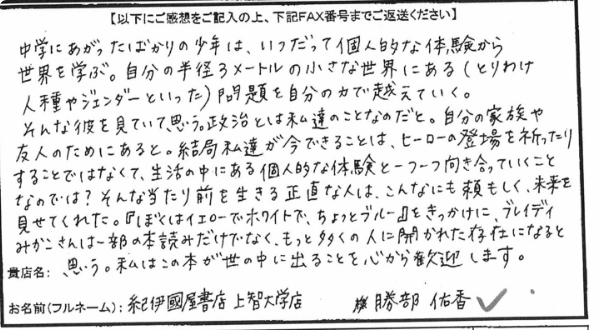 【以下にご感想をご記入の上、下記FAX番号までご返送ください】
中学にあがったばかりの少年は、いつだって個人的な体験から
世界を学ぶ。自分の半径3メートルの小さな世界にある(とりわけ
人種やジェンダーといった)問題を自分の力で越えていく。
そんな彼を見ていて思う。政治とは私達のことなのだと。自分の家族や
友人のためにあると。結局私達が今できることは、ヒーローの登場を祈ったり
することではなくて、生活の中にある個人的な体験と一つ一つ向き合っていくこと
なのでは?そんな当たり前を生きる正直な人は、こんなにも頼もしく、未来を
見せてくれた。『ぼくはイエローでホワイトで、ちょっとブルー』をきっかけに、ブレイディ
みかこさんは一部の本読みだけでなく、もっと多くの人に開かれた存在になると
貴店名: 思う。私はこの本が世の中に出ることを心から歓迎します。
お名前(フルネーム): 紀伊國屋書店 上智大学店 勝部 佑香